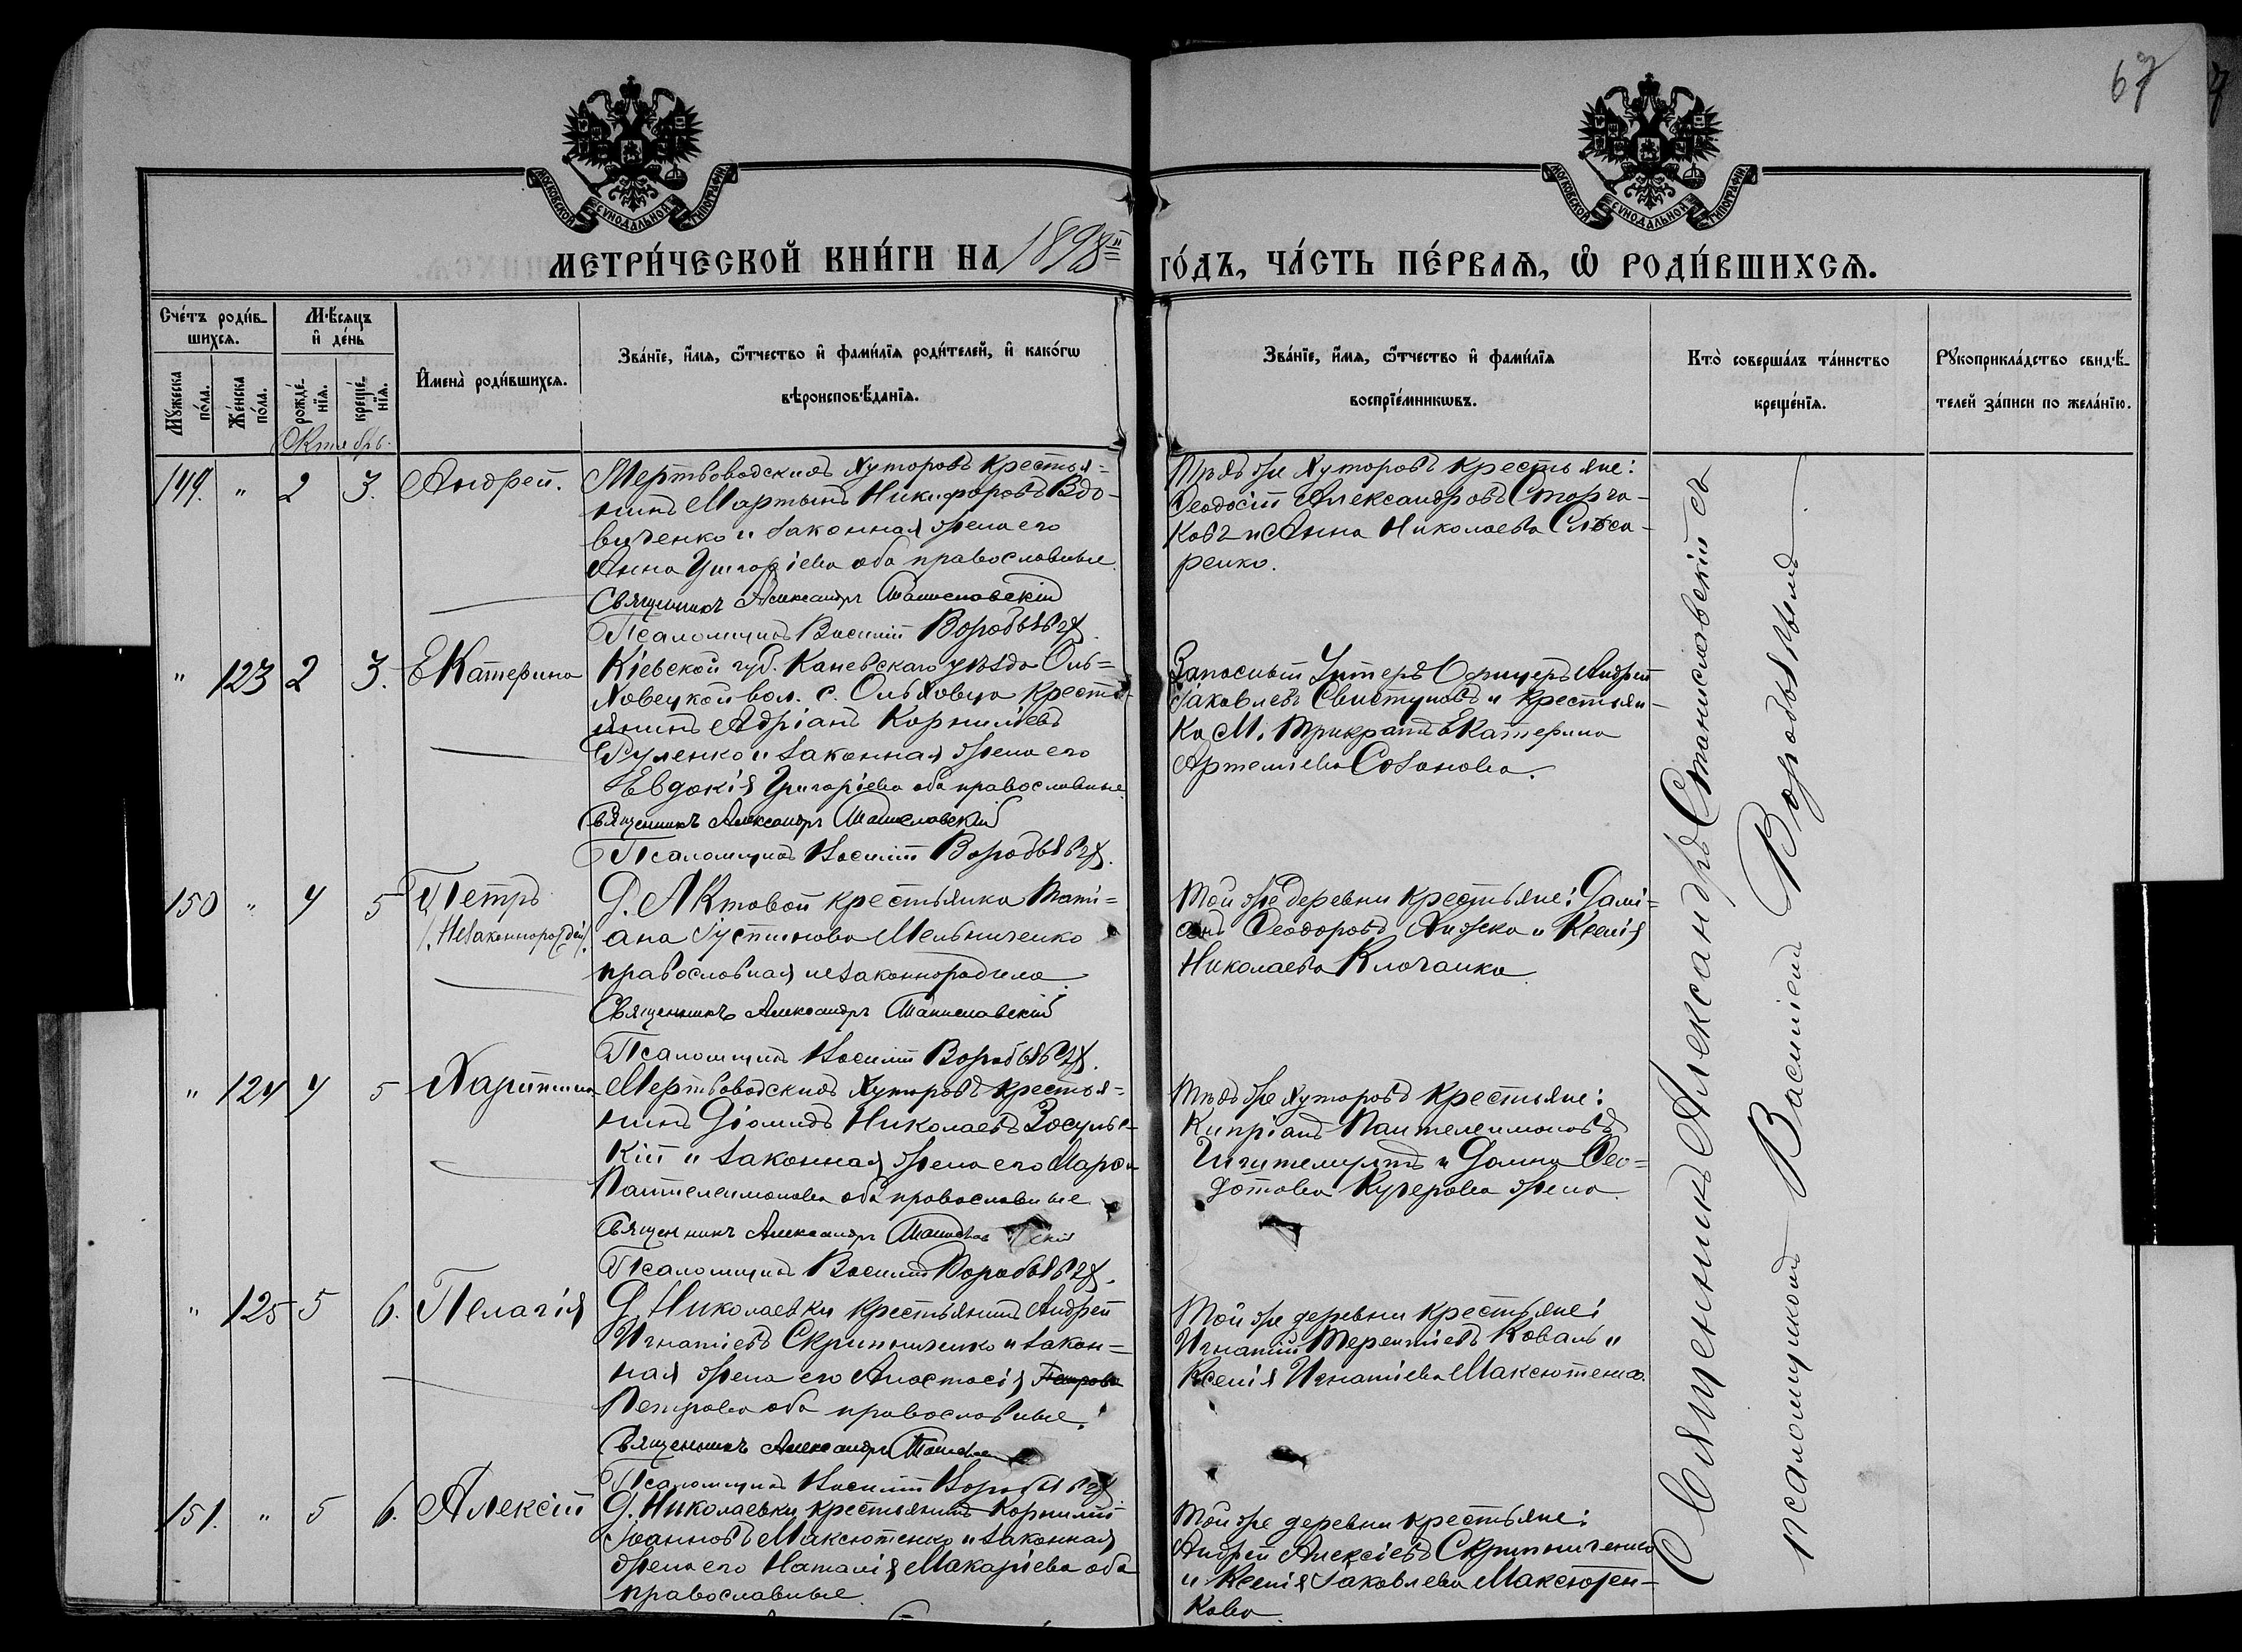 67
МОСКОВСКОЙ СѴНОДАЛЬНОЙ ТИПОГРАФІИ
МОСКОВСКОЙ СѴНОДАЛЬНОЙ ТИПОГРАФІИ
МЕТРИ́ЧЕСКОЙ КНИ́ГИ НА 1898й ГО́ДЪ, ЧА́СТЬ ПЕ́РВАѦ, Ѡ РОДИ́ВШИХСѦ.
Сче́тъ роди́в-
шихсѧ.
Мꙋжеска
по́ла.
Же́нска
по́ла.
Мѣ́сѧцъ
и҆ де́нь
рожде́-
нїѧ.
креще́-
нїѧ.
Октябрь.
И҆мена̀ роди́вшихсѧ.
Зва́нїе, и҆́мѧ, ѻ҆́тчество и҆ фами́лїѧ роди́телей, и҆ како́гѡ
вѣроисповѣ́данїѧ.
Зва́нїе, и҆́мѧ, ѻ҆́тчество и҆ фами́лїѧ
воспрїе́мникѡвъ.
Кто̀ соверша́лъ та́инство
креще́нїѧ.
Рꙋкоприкла́дство свидѣ́-
телей за́писи по жела́нїю.
149. " 2 3. Андрей.
Мертвоводскихъ хуторовъ крестья=
нинъ Мартынъ Никифоровъ Вдо-
виченко и законная жена его
Анна Григоріева оба православные.
Священникъ Александръ Станиславскій
Псаломщикъ Василій Воробьявъ
Тѣхъ же хуторовъ крестьяне:
Ѳеодосій Александровъ Сторча-
ковъ и Анна Николаева Слюса-
ренко.
" 123 2 3. Екатерина
Кіевской губ. Каневскаго уѣзда Оль=
ховецкой вол. с. Ольховца кресть-
янинъ Адріанъ Корниліевъ
законная жена его
Евдокія Григоріева оба православные.
Священникъ Александръ Станиславскій
Псаломщикъ Василій Воробьявъ
Запасный Унтеръ Офицеръ Андрей
Іаковлевъ Свистуновъ и крестьян-
ка М. Трикратъ Екатерина
Артеміева Созонова.
150 " 4 5 Петръ
/. Незаконнорожден. /.
Д. Актовой крестьянка Тати=
ана Іустинова Мельниченко
православная незаконнородила.
Священникъ Александръ Станиславскій
Псаломщикъ Василій Воробьявъ
Той же деревни крестьяне: Дамі=
анъ Ѳеодоровъ Хижка и Ксенія
Николаева Ключанка.
" 124 4 5 Харитина
Мертвоводскихъ хуторовъ крестья=
нинъ Діомидъ Николаевъ Зосульс-
кій и законная жена его Марѳа
Пантелеимонова оба православные
Священникъ Александръ Станиславскій
Псаломщикъ Василій Воробьявъ
Тѣхъ же хуторовъ крестьяне:
Кипріанъ Пантелеимоновъ
и Домна Ѳео=
дотова Кучерова жена.
" 125 5 6. Пелагія
Д. Николаевки крестьянинъ Андрей
Игнатіевъ Скрипниченко и закон=
ная жена его Анастасія Петрова
Петрова оба православные.
Священникъ Александръ
Псаломщикъ Василій Воробьявъ
Той же деревни крестьяне:
Игнатій Терентіевъ Коваль и
Ксенія Игнатіева Максютенко.
151. " 5 6. Алексій
Д. Николаевки крестьянинъ Корнилій
Іоанновъ Максютенко и законная
жена его Наталія Макаріева оба
православные.
Той же деревни крестьяне:
Андрей Алексіевъ Скрипниченко
и Ксенія Іаковлева Максютен-
кова.
Священникъ Александръ Станиславскій съ
псаломщикомъ Василіемъ Воробьявымъ